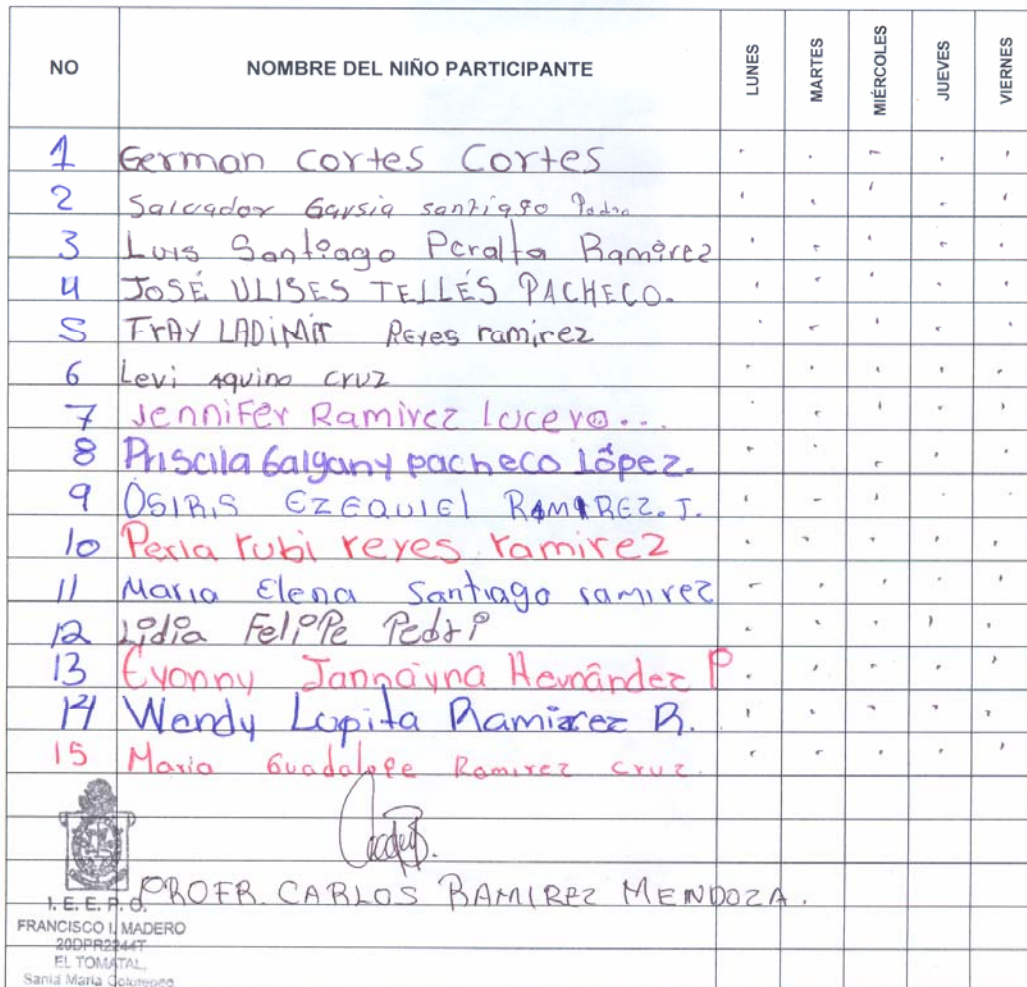 NO NOMBRE DEL NIÑO PARTICIPANTE LUNES MARTES MIÉRCOLES JUEVES VIERNES
1 German cortes Cortes
2 Salvador Garsia santiago Pedro
3 Luis Santiago Peralta Ramirez
4 JOSÉ ULISES TELLÉS PACHECO.
5 FrAY LADiMir Reyes ramirez
6 Levi aquino cruz
7 Jennifer Ramirez Lucero...
8 Priscila Galgany pacheco López.
9 OSIRIS EZEQUIEl RAMIREZ. J.
10 Perla rubi reyes ramirez
11 Maria Elena Santiago ramirez
12 Lidia Felipe
13 Evonny Jannayna Hernández P.
14 Wendy Lupita Ramirez R.
15 Maria Guadalupe Ramirez cruz.
PROFR. CARLOS RAMIREZ MENDOZA.
I. E. E. P. O.
FRANCISCO I. MADERO
20DPR2244T
EL TOMATAL,
Santa Maria Colotepec